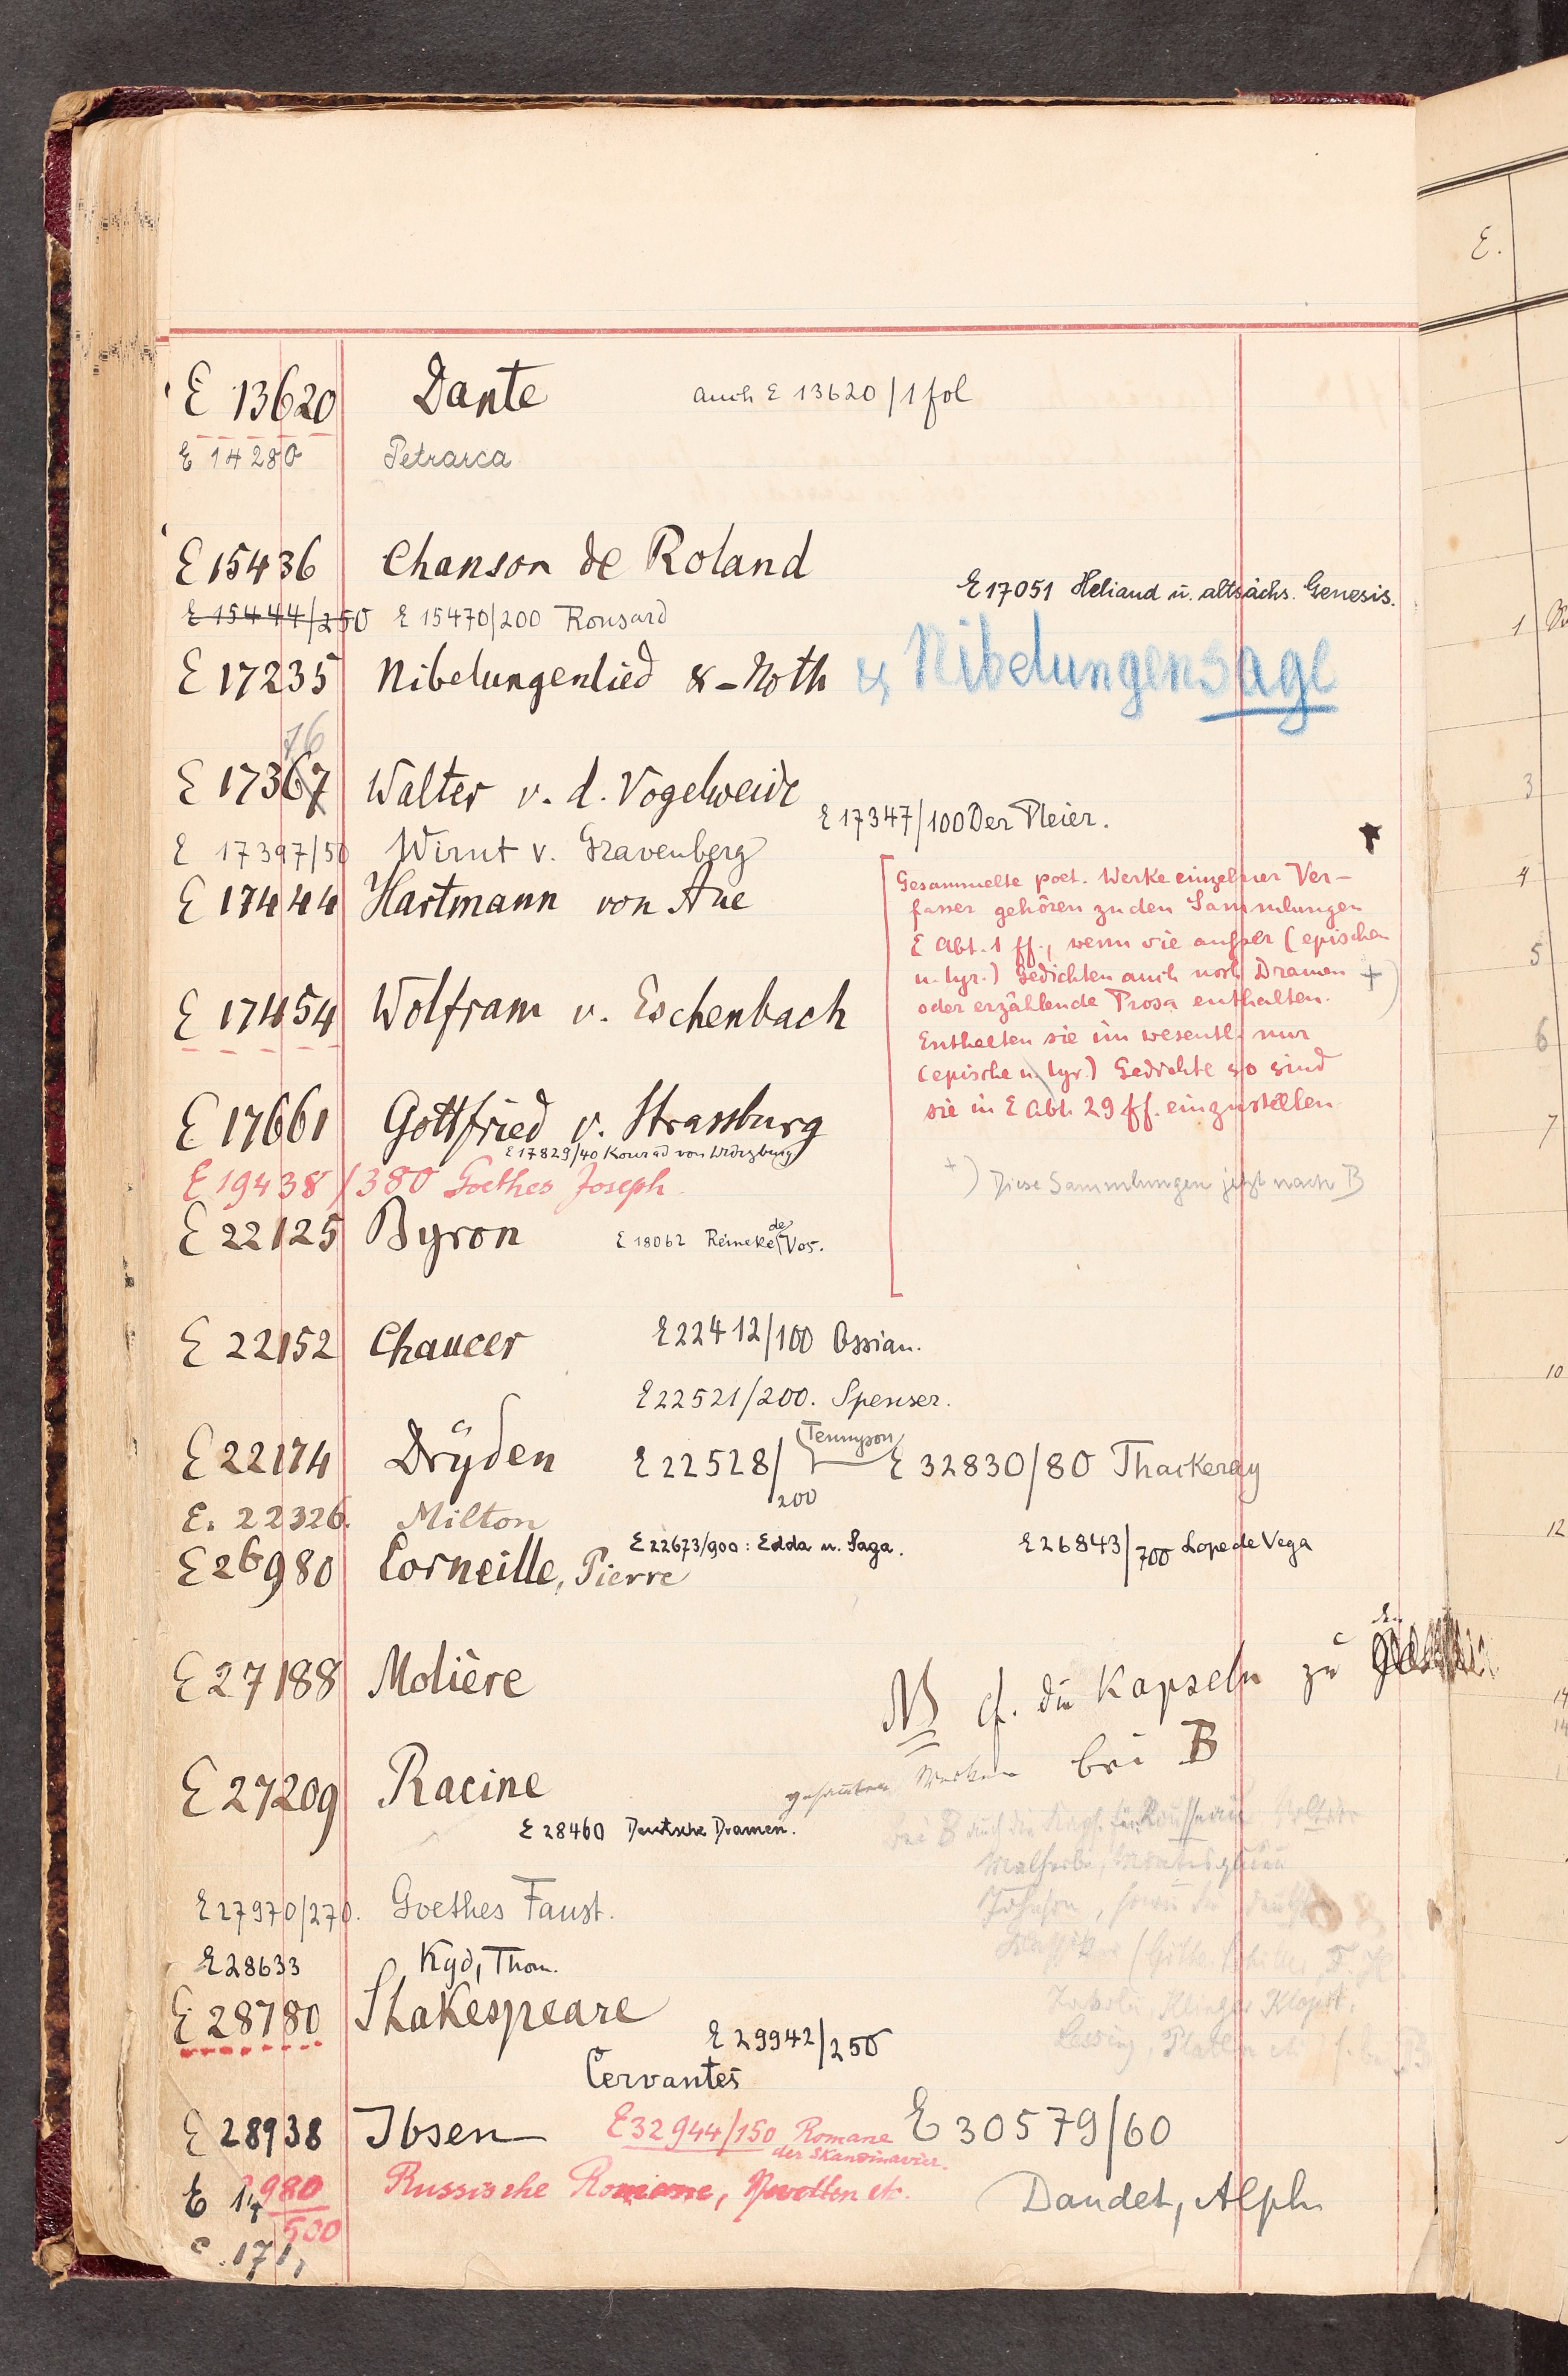 E 13620 Dante auch E 13620/1 fol
E 14280 Petrarca
E 15436 Chanson de Roland
E 17051 Heliand u. altsächs. Genesis.
E 15444/250 E 15470/200 Ronsard
E 17235 Nibelungenlied & -Noth & Nibelungensage
76
E 17367 Walter v. d. Vogelweide
E 17347/100 Der Pleier.
E 17397/50 Wirnt v. Gravenberg
E 17444 Hartmann von Aue
E 17454 Wolfram v. Eschenbach
Gesammelte poet. Werke einzelner Ver-
fasser gehören zu den Sammlungen
E Abt. 1 ff., wenn sie außer (epischen
u. lyr.) Gedichten auch noch Dramen +)
oder erzählende Prosa enthalten.
Enthalten sie im wesentl. nur
(epische u. lyr.) Gedichte so sind
sie in E Abt. 29 ff. einzustellen
+) Diese Sammlungen jetzt nach B
E 17661 Gottfried v. Strassburg
E 17829/40 Konrad von Würzburg
E 19438/380 Goethes Joseph
E 22125 Byron E 18062 Reineke de Vos.
E 22152 Chaucer E 22412/100 Ossian.
E 22521/200. Spenser.
E 22174 Dryden E 22528/200 Tennyson E 32830/80 Thackeray
E. 22326. Milton
E 22673/900: Edda u. Saga. E 26843/700 Lope de Vega
E 26980 Corneille, Pierre
E 27188 Molière
NB cf. die Kapseln zu den
gesamten Werken bei B
E 27209 Racine
E 28460 Deutsche Dramen.
Bei B auch die Kaps. für Rousseau Voltaire
Malherbe,
Johnson, sowie die
E 27970/270. Goethes Faust.
E 28633 Kyd, Thom.
Klinger Klopst.
Lessing, Platen
E 28780 Shakespeare
E 29942/250
Cervantes
E 28938 Ibsen E 32944/150 Romane
der Skandinavier.
E 30579/60
Daudet, Alph.
E 980/500 Russische Romane, Novellen etc.
171